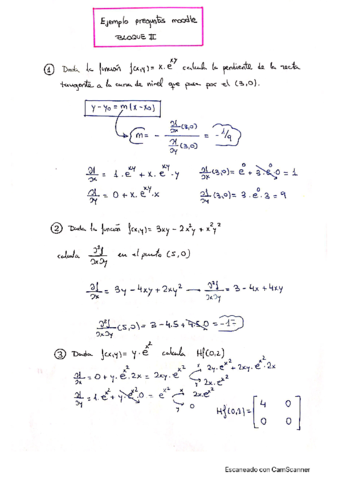 Ejemplo preguntas moodle
BLOQUE III
① Dada la función f(x,y) = x·e^{xy} calcula la pendiente de la recta
tangente a la curva de nivel que pasa por el (3,0).
y - y₀ = m(x - x₀)
m = - ∂f/∂x (3,0) / ∂f/∂y (3,0) = -1/9
∂f/∂x = 1·e^{xy} + x·e^{xy}·y    ∂f/∂x (3,0) = e⁰ + 3·e⁰·0 = 1
∂f/∂y = 0 + x·e^{xy}·x    ∂f/∂y (3,0) = 3·e⁰·3 = 9
② Dada la función f(x,y) = 3xy - 2x²y + x²y²
calcula ∂²f/∂x∂y en el punto (5,0)
∂f/∂x = 3y - 4xy + 2xy² → ∂²f/∂x∂y = 3 - 4x + 4xy
∂²f/∂x∂y (5,0) = 3 - 4·5 + 4·5·0 = -17
③ Dada f(x,y) = y·e^{x²} calcula Hf(0,2)
∂f/∂x = 0 + y·e^{x²}·2x = 2xy·e^{x²} x 2y·e^{x²} + 2xy·e^{x²}·2x
y 2x·e^{x²}
∂f/∂y = 1·e^{x²} + y·e^{x²}·0 = e^{x²} x 2x·e^{x²}
y 0
Hf(0,2) = [4 0
0 0]
Escaneado con CamScanner